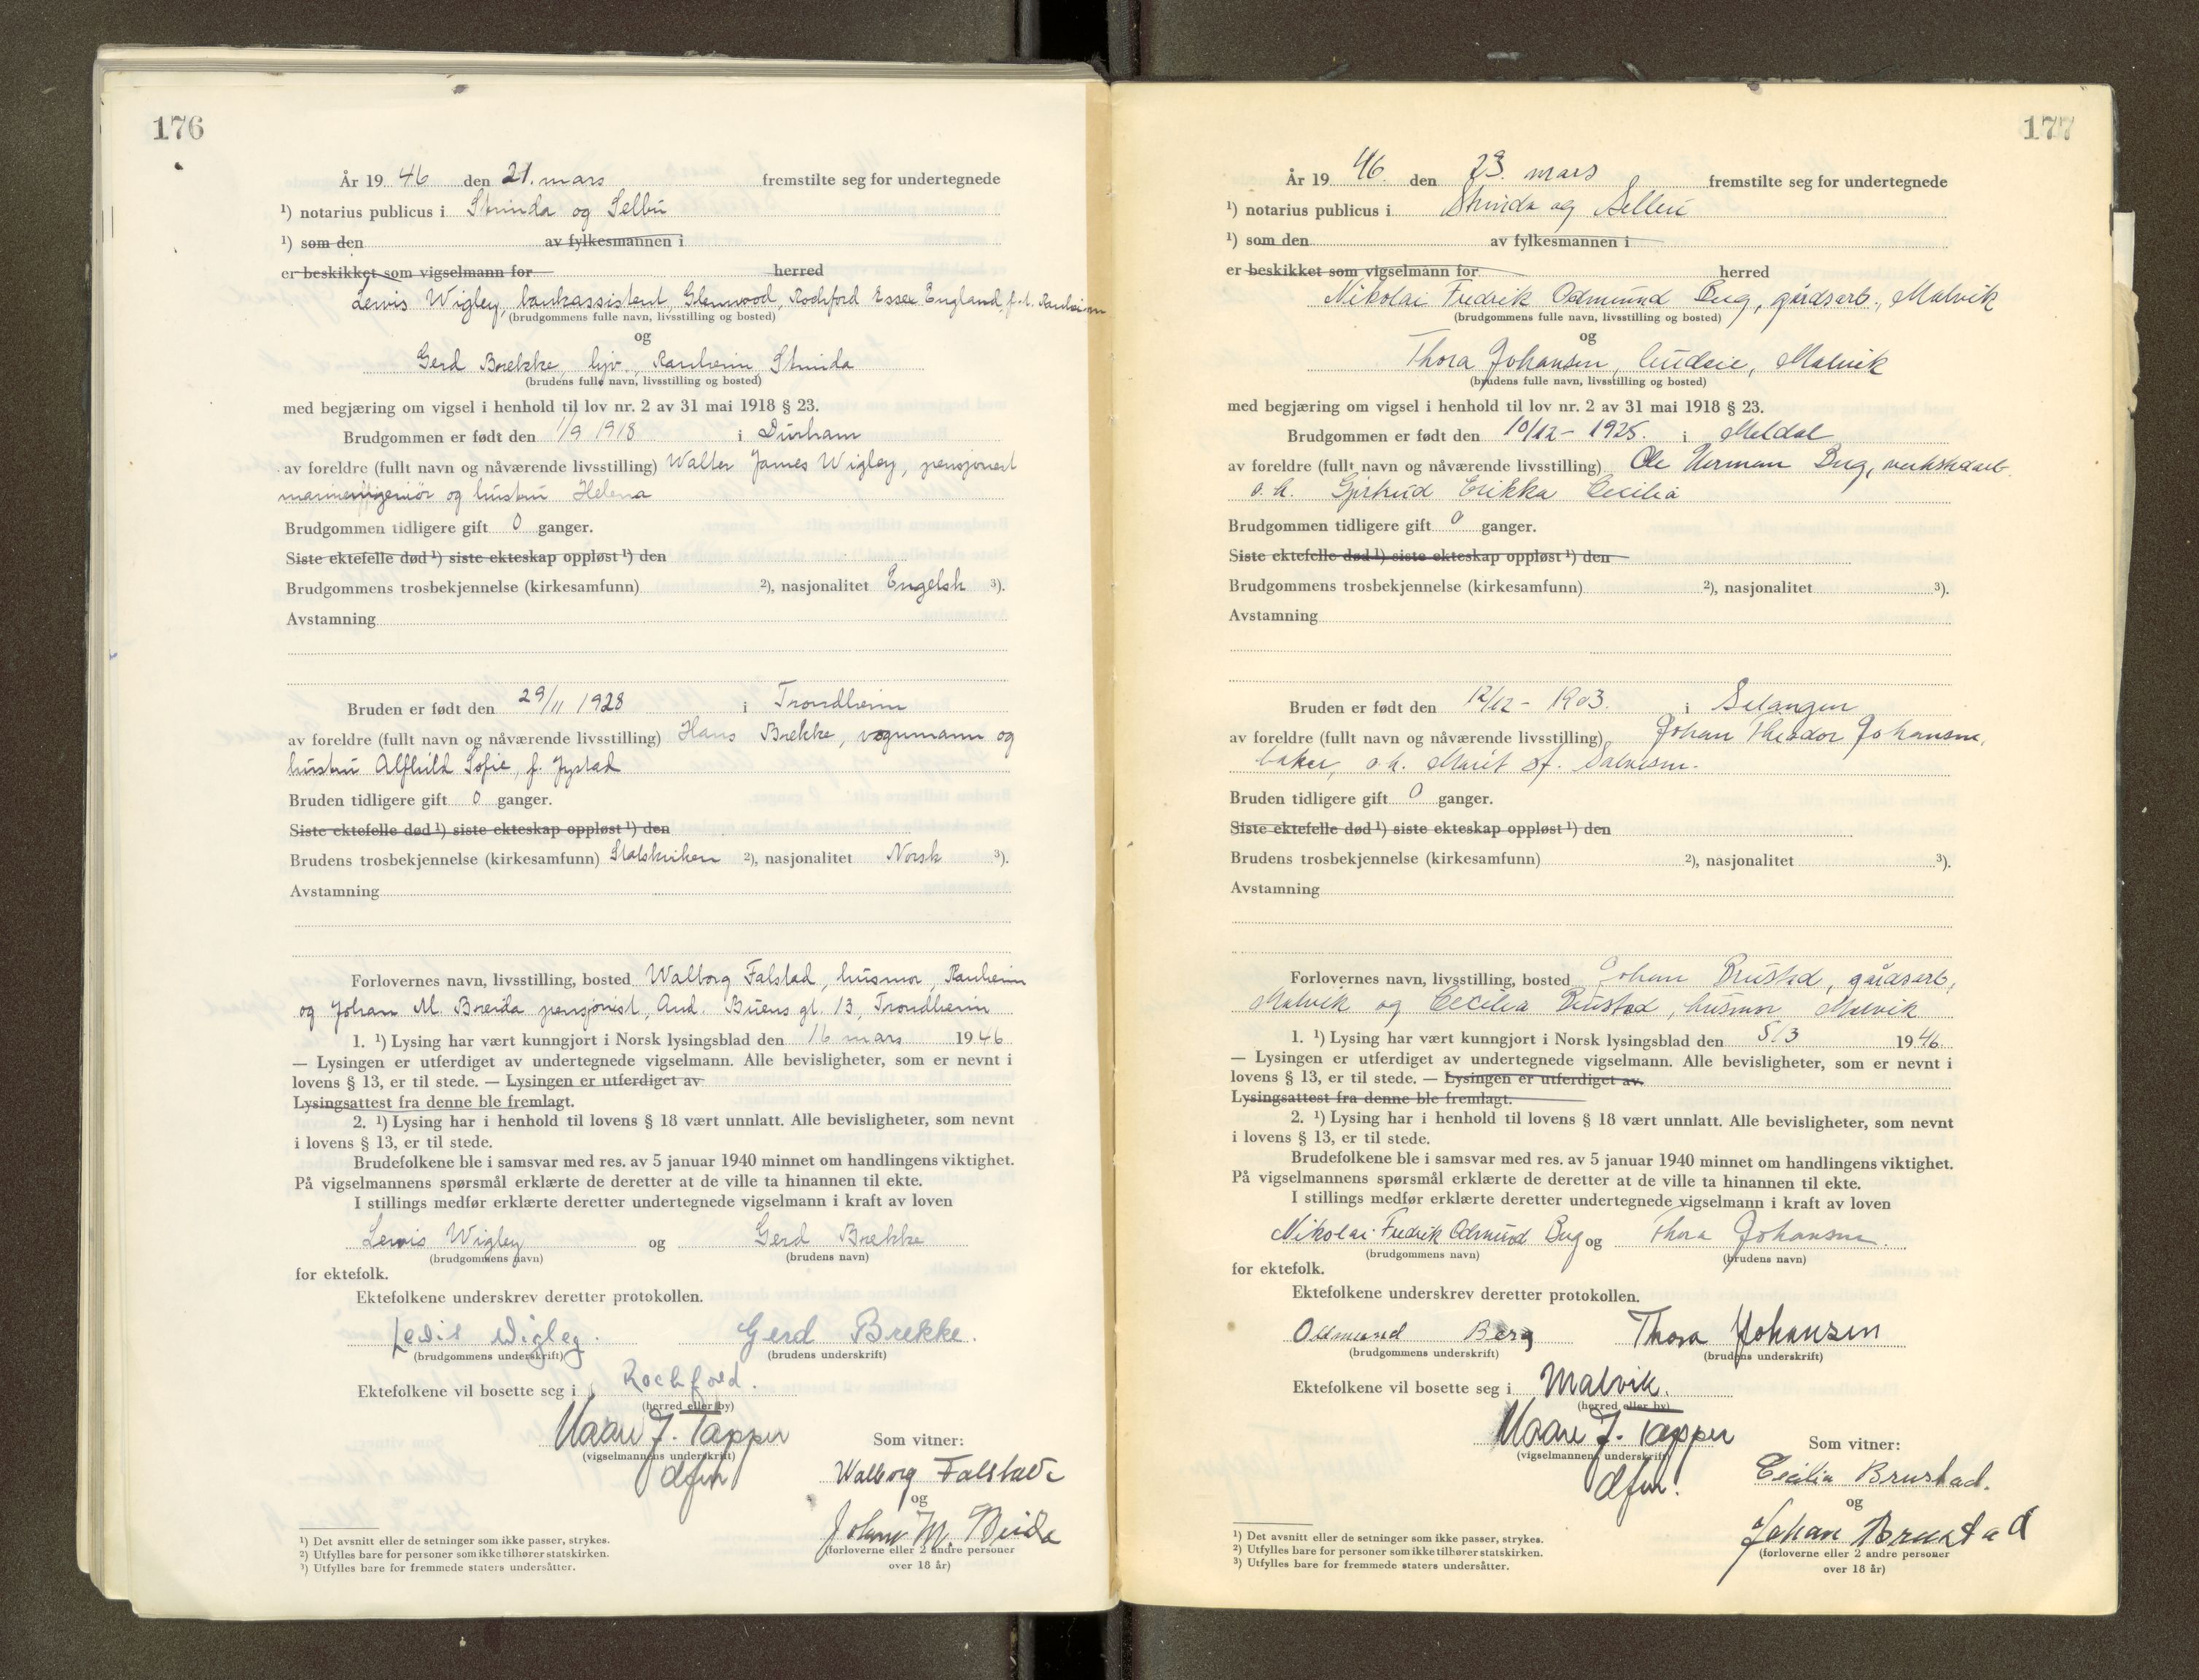 176
År 19 46 den 21. mars fremstilte seg for undertegnede
¹) notarius publicus i Strinda og Selbu
¹) som den av fylkesmannen i
er beskikket som vigselmann for herred
Lewis Wigley, bankassistent Glenwood, Rochford Essex England, f.t. Ranheim
(brudgommens fulle navn, livsstilling og bosted)
og
Gerd Brekke, hjv., Ranheim, Strinda
(brudens fulle navn, livsstilling og bosted)
med begjæring om vigsel i henhold til lov nr. 2 av 31 mai 1918 § 23.
Brudgommen er født den 1/9 1918 i Durham
av foreldre (fullt navn og nåværende livsstilling) Walter James Wigley, pensjonert
marineingeniør og hustru Helena
Brudgommen tidligere gift 0 ganger.
Siste ektefelle død ¹) siste ekteskap oppløst ¹) den
Brudgommens trosbekjennelse (kirkesamfunn) ²), nasjonalitet Engelsk ³).
Avstamning
Bruden er født den 29/11 1928 i Trondheim
av foreldre (fullt navn og nåværende livsstilling) Hans Brekke, vognmann og
hustru Alfhild Sofie, f. Jystad
Bruden tidligere gift 0 ganger.
Siste ektefelle død ¹) siste ekteskap oppløst ¹) den
Brudens trosbekjennelse (kirkesamfunn) Statskirken ²), nasjonalitet Norsk ³).
Avstamning
Forlovernes navn, livsstilling, bosted Walborg Falstad, husmor, Ranheim
og Johan M. Breida pensjonist, And. Buens gt. 13, Trondheim
1. ¹) Lysing har vært kunngjort i Norsk lysingsblad den 16 mars 1946
— Lysingen er utferdiget av undertegnede vigselmann. Alle bevisligheter, som er nevnt i
lovens § 13, er til stede. — Lysingen er utferdiget av
Lysingsattest fra denne ble fremlagt.
2. ¹) Lysing har i henhold til lovens § 18 vært unnlatt. Alle bevisligheter, som nevnt
i lovens § 13, er til stede.
Brudefolkene ble i samsvar med res. av 5 januar 1940 minnet om handlingens viktighet.
På vigselmannens spørsmål erklærte de deretter at de ville ta hinannen til ekte.
I stillings medfør erklærte deretter undertegnede vigselmann i kraft av loven
Lewis Wigley og Gerd Brekke
(brudgommens navn) (brudens navn)
for ektefolk.
Ektefolkene underskrev deretter protokollen.
Lewis Wigley. Gerd Brekke.
(brudgommens underskrift) (brudens underskrift)
Ektefolkene vil bosette seg i Rochford.
(herred eller by)
Kaare J. Tapper
(vigselmannens underskrift)
dfm
Som vitner:
Walborg Falstad
og
Johan M. Breida
(forloverne eller 2 andre personer
over 18 år)
¹) Det avsnitt eller de setninger som ikke passer, strykes.
²) Utfylles bare for personer som ikke tilhører statskirken.
³) Utfylles bare for fremmede staters undersåtter.
177
År 19 46. den 23. mars fremstilte seg for undertegnede
¹) notarius publicus i Strinda og Selbu
¹) som den av fylkesmannen i
er beskikket som vigselmann for herred
Nikolai Fredrik Odmund Berg, gårdsarb., Malvik
(brudgommens fulle navn, livsstilling og bosted)
og
Thora Johansen, budeie, Malvik
(brudens fulle navn, livsstilling og bosted)
med begjæring om vigsel i henhold til lov nr. 2 av 31 mai 1918 § 23.
Brudgommen er født den 10/12 - 1925. i Meldal
av foreldre (fullt navn og nåværende livsstilling) Ole Herman Berg, verkstedarb.
o.h. Gjertrud Erikka Cecilia
Brudgommen tidligere gift 0 ganger.
Siste ektefelle død ¹) siste ekteskap oppløst ¹) den
Brudgommens trosbekjennelse (kirkesamfunn) ²), nasjonalitet ³).
Avstamning
Bruden er født den 12/12 - 1903. i Selangen
av foreldre (fullt navn og nåværende livsstilling) Johan Theodor Johansen,
baker, o.h. Marit f. Salvesen.
Bruden tidligere gift 0 ganger.
Siste ektefelle død ¹) siste ekteskap oppløst ¹) den
Brudens trosbekjennelse (kirkesamfunn) ²), nasjonalitet ³).
Avstamning
Forlovernes navn, livsstilling, bosted Johan Brustad, gårdsarb,
Malvik og Cecilia Brustad, husmor Malvik
1. ¹) Lysing har vært kunngjort i Norsk lysingsblad den 5/3 1946.
— Lysingen er utferdiget av undertegnede vigselmann. Alle bevisligheter, som er nevnt i
lovens § 13, er til stede. — Lysingen er utferdiget av.
Lysingsattest fra denne ble fremlagt.
2. ¹) Lysing har i henhold til lovens § 18 vært unnlatt. Alle bevisligheter, som nevnt
i lovens § 13, er til stede.
Brudefolkene ble i samsvar med res. av 5 januar 1940 minnet om handlingens viktighet.
På vigselmannens spørsmål erklærte de deretter at de ville ta hinannen til ekte.
I stillings medfør erklærte deretter undertegnede vigselmann i kraft av loven
Nikolai Fredrik Odmund Berg og Thora Johansen.
(brudgommens navn) (brudens navn)
for ektefolk.
Ektefolkene underskrev deretter protokollen.
Odmund Berg Thora Johansen
(brudgommens underskrift) (brudens underskrift)
Ektefolkene vil bosette seg i Malvik.
(herred eller by)
Kaare J. Tapper
(vigselmannens underskrift)
dfm.
Som vitner:
Cecilia Brustad.
og
Johan Brustad
(forloverne eller 2 andre personer
over 18 år)
¹) Det avsnitt eller de setninger som ikke passer, strykes.
²) Utfylles bare for personer som ikke tilhører statskirken.
³) Utfylles bare for fremmede staters undersåtter.